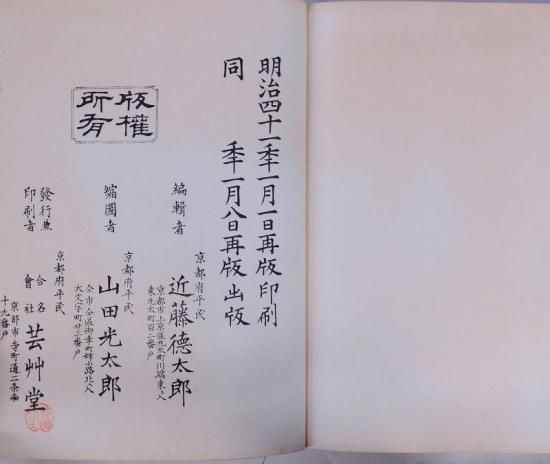 明治四十一年一月一日再版印刷
同 年一月八日再版出版
版權所有
編輯者
京都府平民
近藤德太郎
京都市上京區丸太町川端東入
東丸太町百二番戸
縮圖者
京都府平民
山田光太郎
仝市仝區御幸町姉小路北入
大文字町廿三番戸
發行兼
印刷者
京都府平民
合名
會社
芸艸堂
京都市寺町通二条南
十九番戸